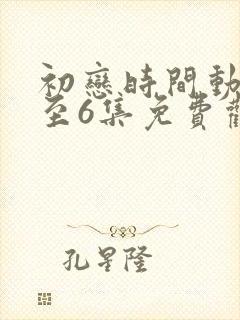 初戀時間動
至6集免費
孔星隆